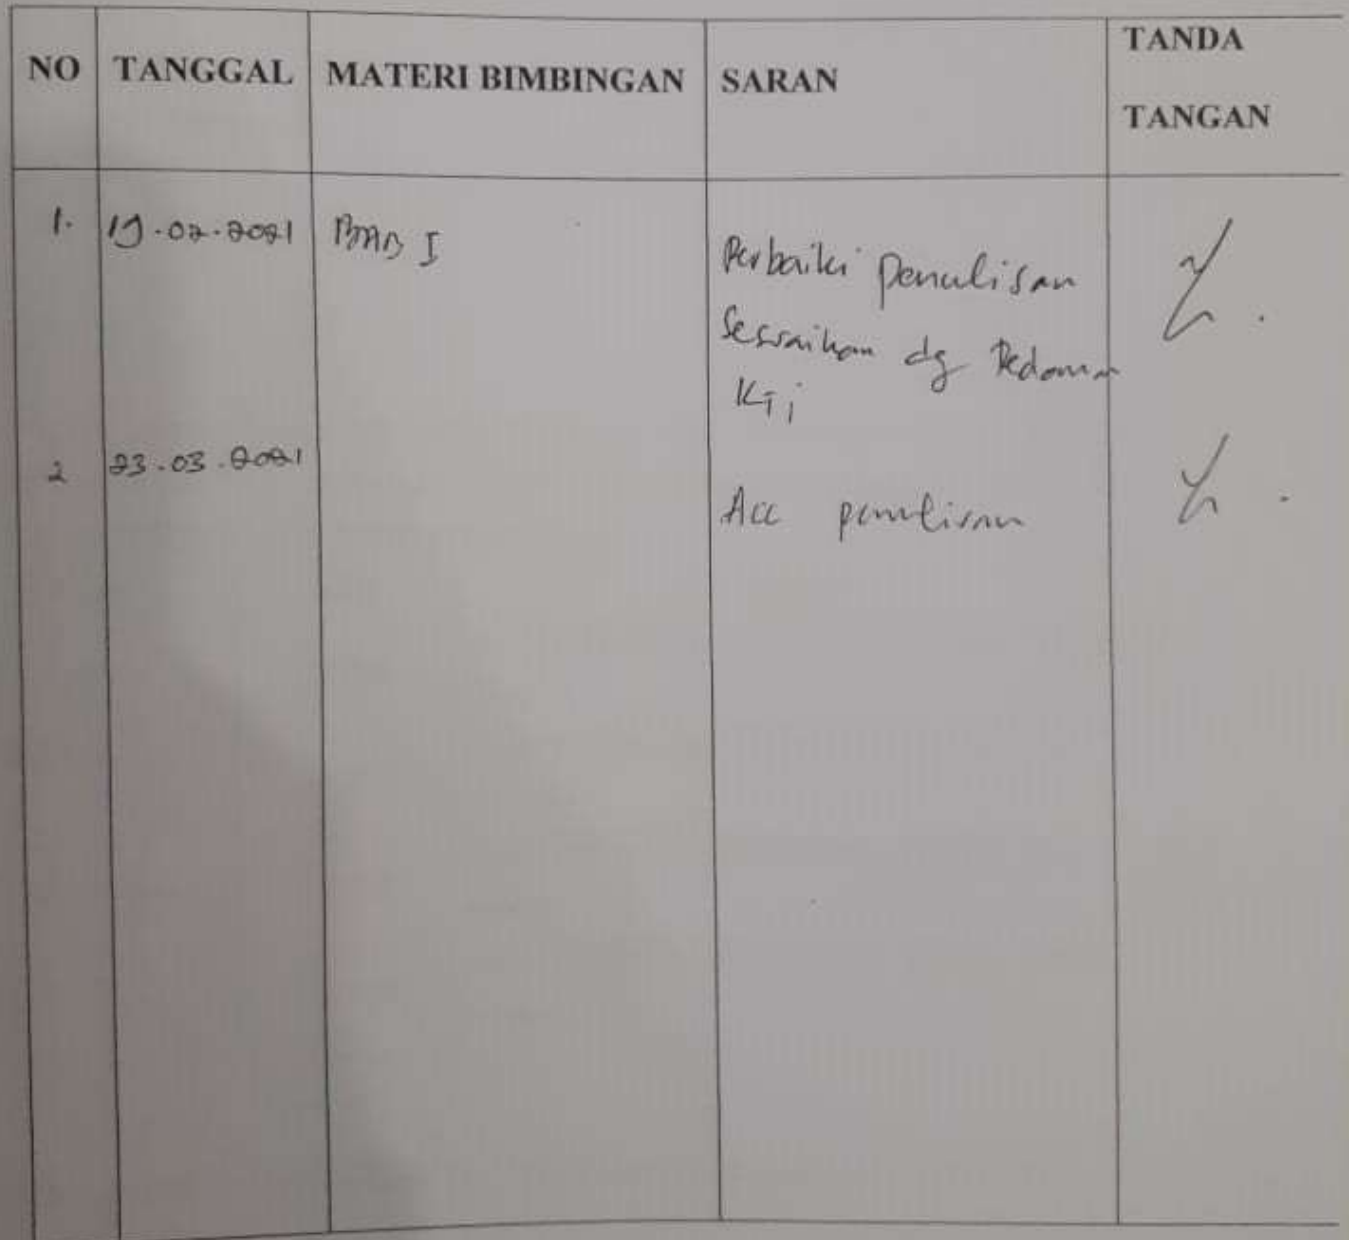 NO TANGGAL MATERI BIMBINGAN SARAN TANDA
TANGAN
1. 19.02.2021 BAB I
Perbaiki penulisan
Sesuaikan dg Pedoman
KTi
2 23.03.2021
Acc penulisan